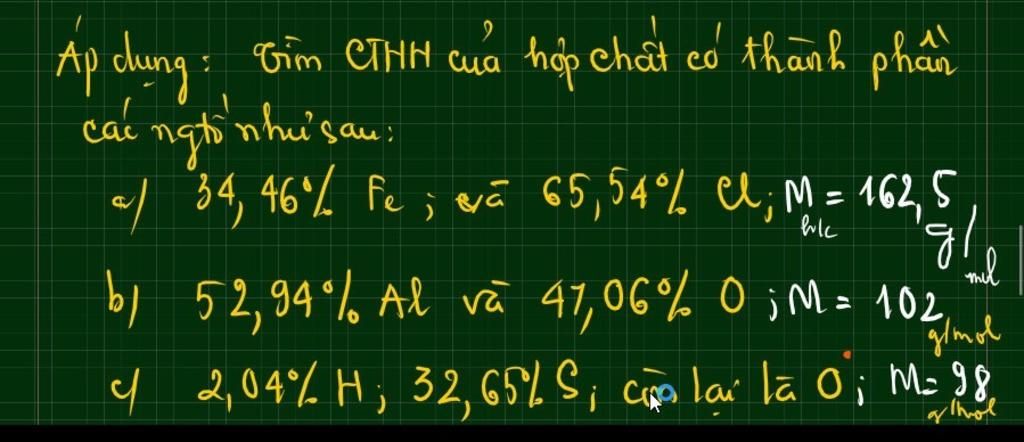 Áp dụng: Tìm CTHH của hợp chất có thành phần
các ngtố như sau:
a/ 34,46% Fe; và 65,54% Cl; M = 162,5
h/c g/mol
b) 52,94% Al và 47,06% O; M = 102
g/mol
c/ 2,04% H; 32,65% S; còn lại là O; M = 98
g/mol